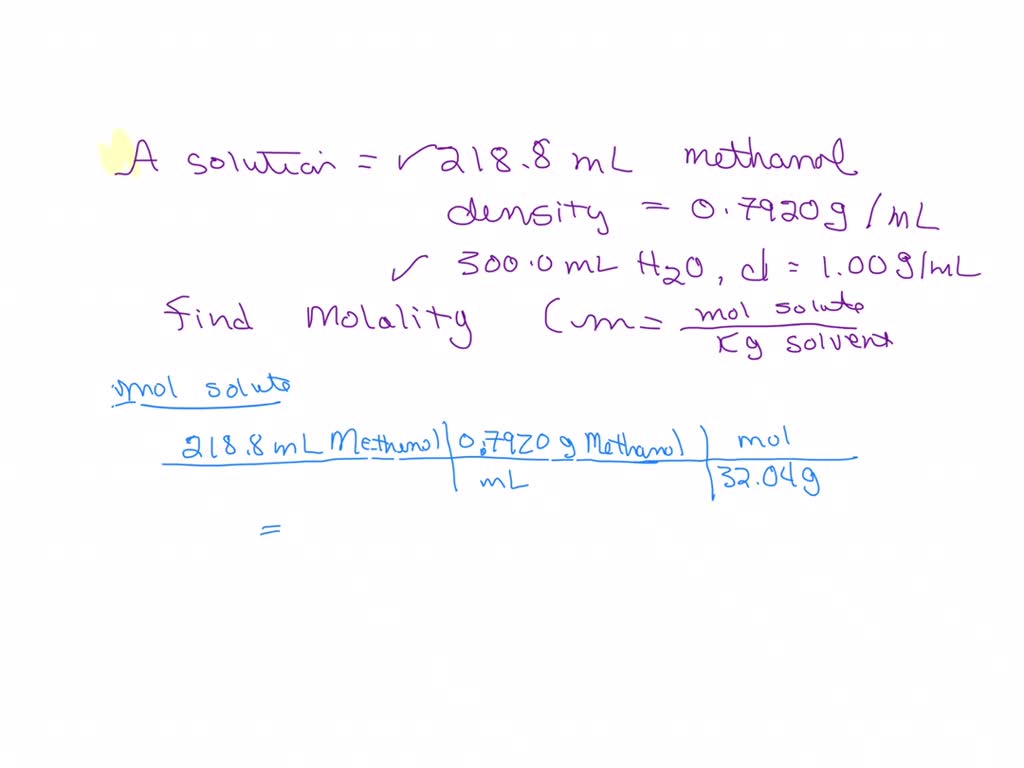 A solution = ✓218.8 mL methanol
density = 0.7920g/mL
✓ 300.0 mL H2O, d = 1.00g/mL
Find Molality (m = mol solute
Kg solvent
mol solute
218.8 mL Methanol | 0.7920 g Methanol | mol
mL | 32.04g
=